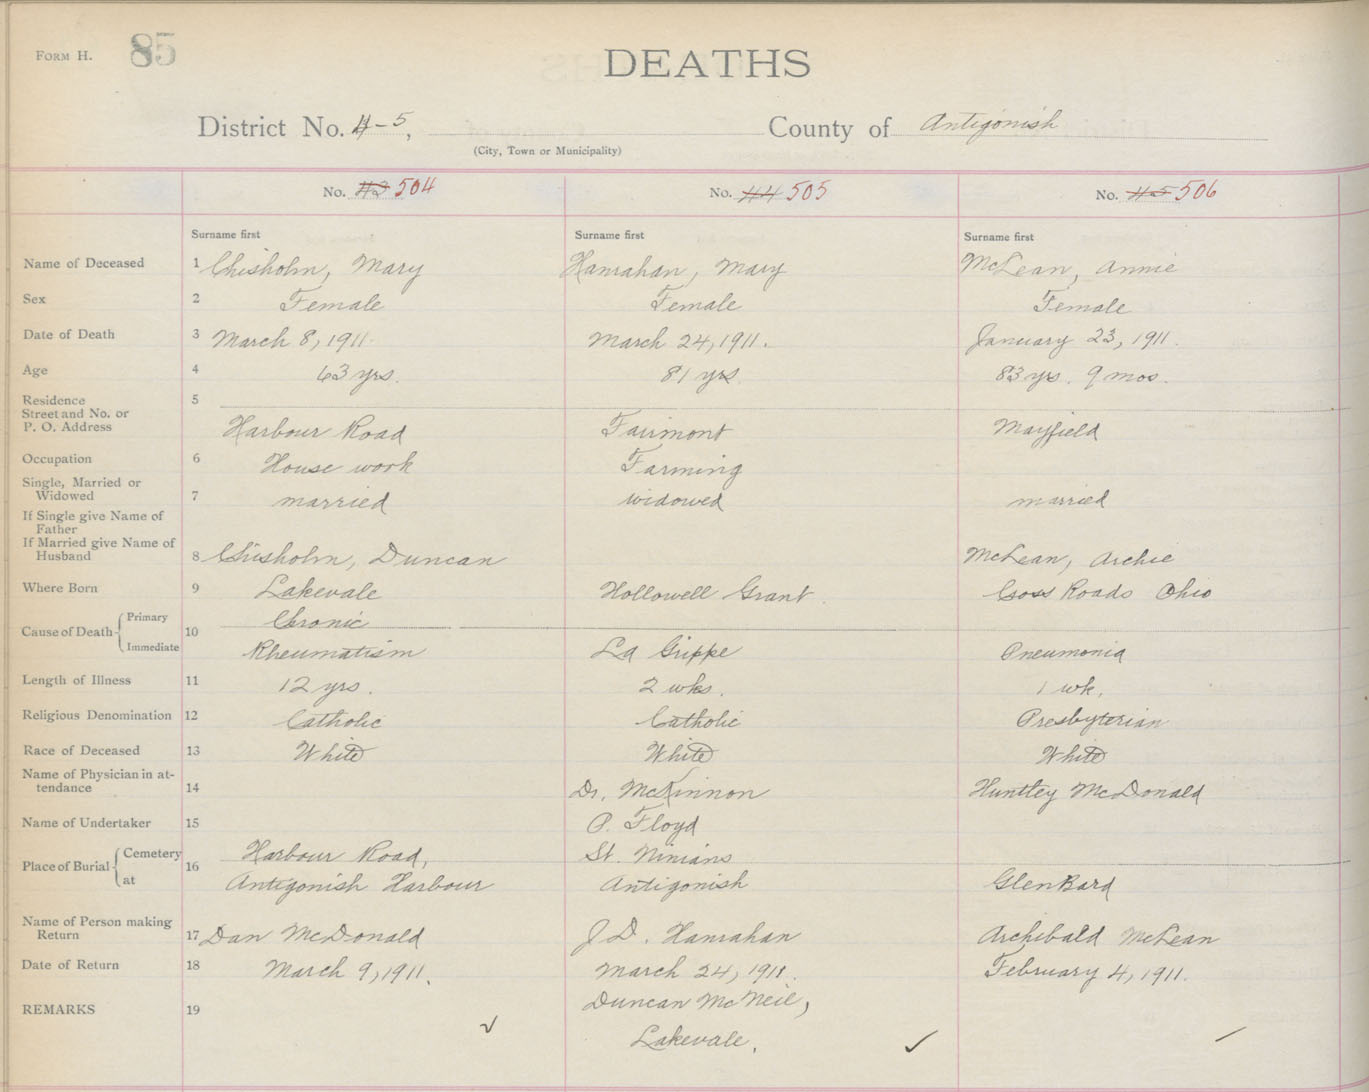 FORM H. 85
DEATHS
District No. 4-5, County of Antigonish
(City, Town or Municipality)
No. 43 504 No. 44 505 No. 45 506
Surname first Surname first Surname first
Name of Deceased 1 Chisholm, Mary Hanrahan, Mary McLean, Annie
Sex 2 Female Female Female
Date of Death 3 March 8, 1911. March 24, 1911. January 23, 1911.
Age 4 63 yrs. 81 yrs 83 yrs. 9 mos.
Residence 5
Street and No. or
P. O. Address Harbour Road Fairmont Mayfield
Occupation 6 House work Farming
Single, Married or
Widowed 7 married widowed married
If Single give Name of
Father
If Married give Name of
Husband 8 Chisholm, Duncan McLean, Archie
Where Born 9 Lakevale Hollowell Grant. Cross Roads Ohio
Cause of Death Primary 10 Chronic
Immediate Rheumatism La Grippe Pneumonia
Length of Illness 11 12 yrs. 2 wks. 1 wk.
Religious Denomination 12 Catholic Catholic Presbyterian
Race of Deceased 13 White White White
Name of Physician in at-
tendance 14 Dr. McKinnon Huntley McDonald
Name of Undertaker 15 P. Floyd
Place of Burial Cemetery 16 Harbour Road, St. Ninians
at Antigonish Harbour Antigonish Glen Bard
Name of Person making
Return 17 Dan McDonald J D. Hanrahan Archibald McLean
Date of Return 18 March 9, 1911. March 24, 1911. February 4, 1911.
REMARKS 19 Duncan McNeil,
Lakevale.